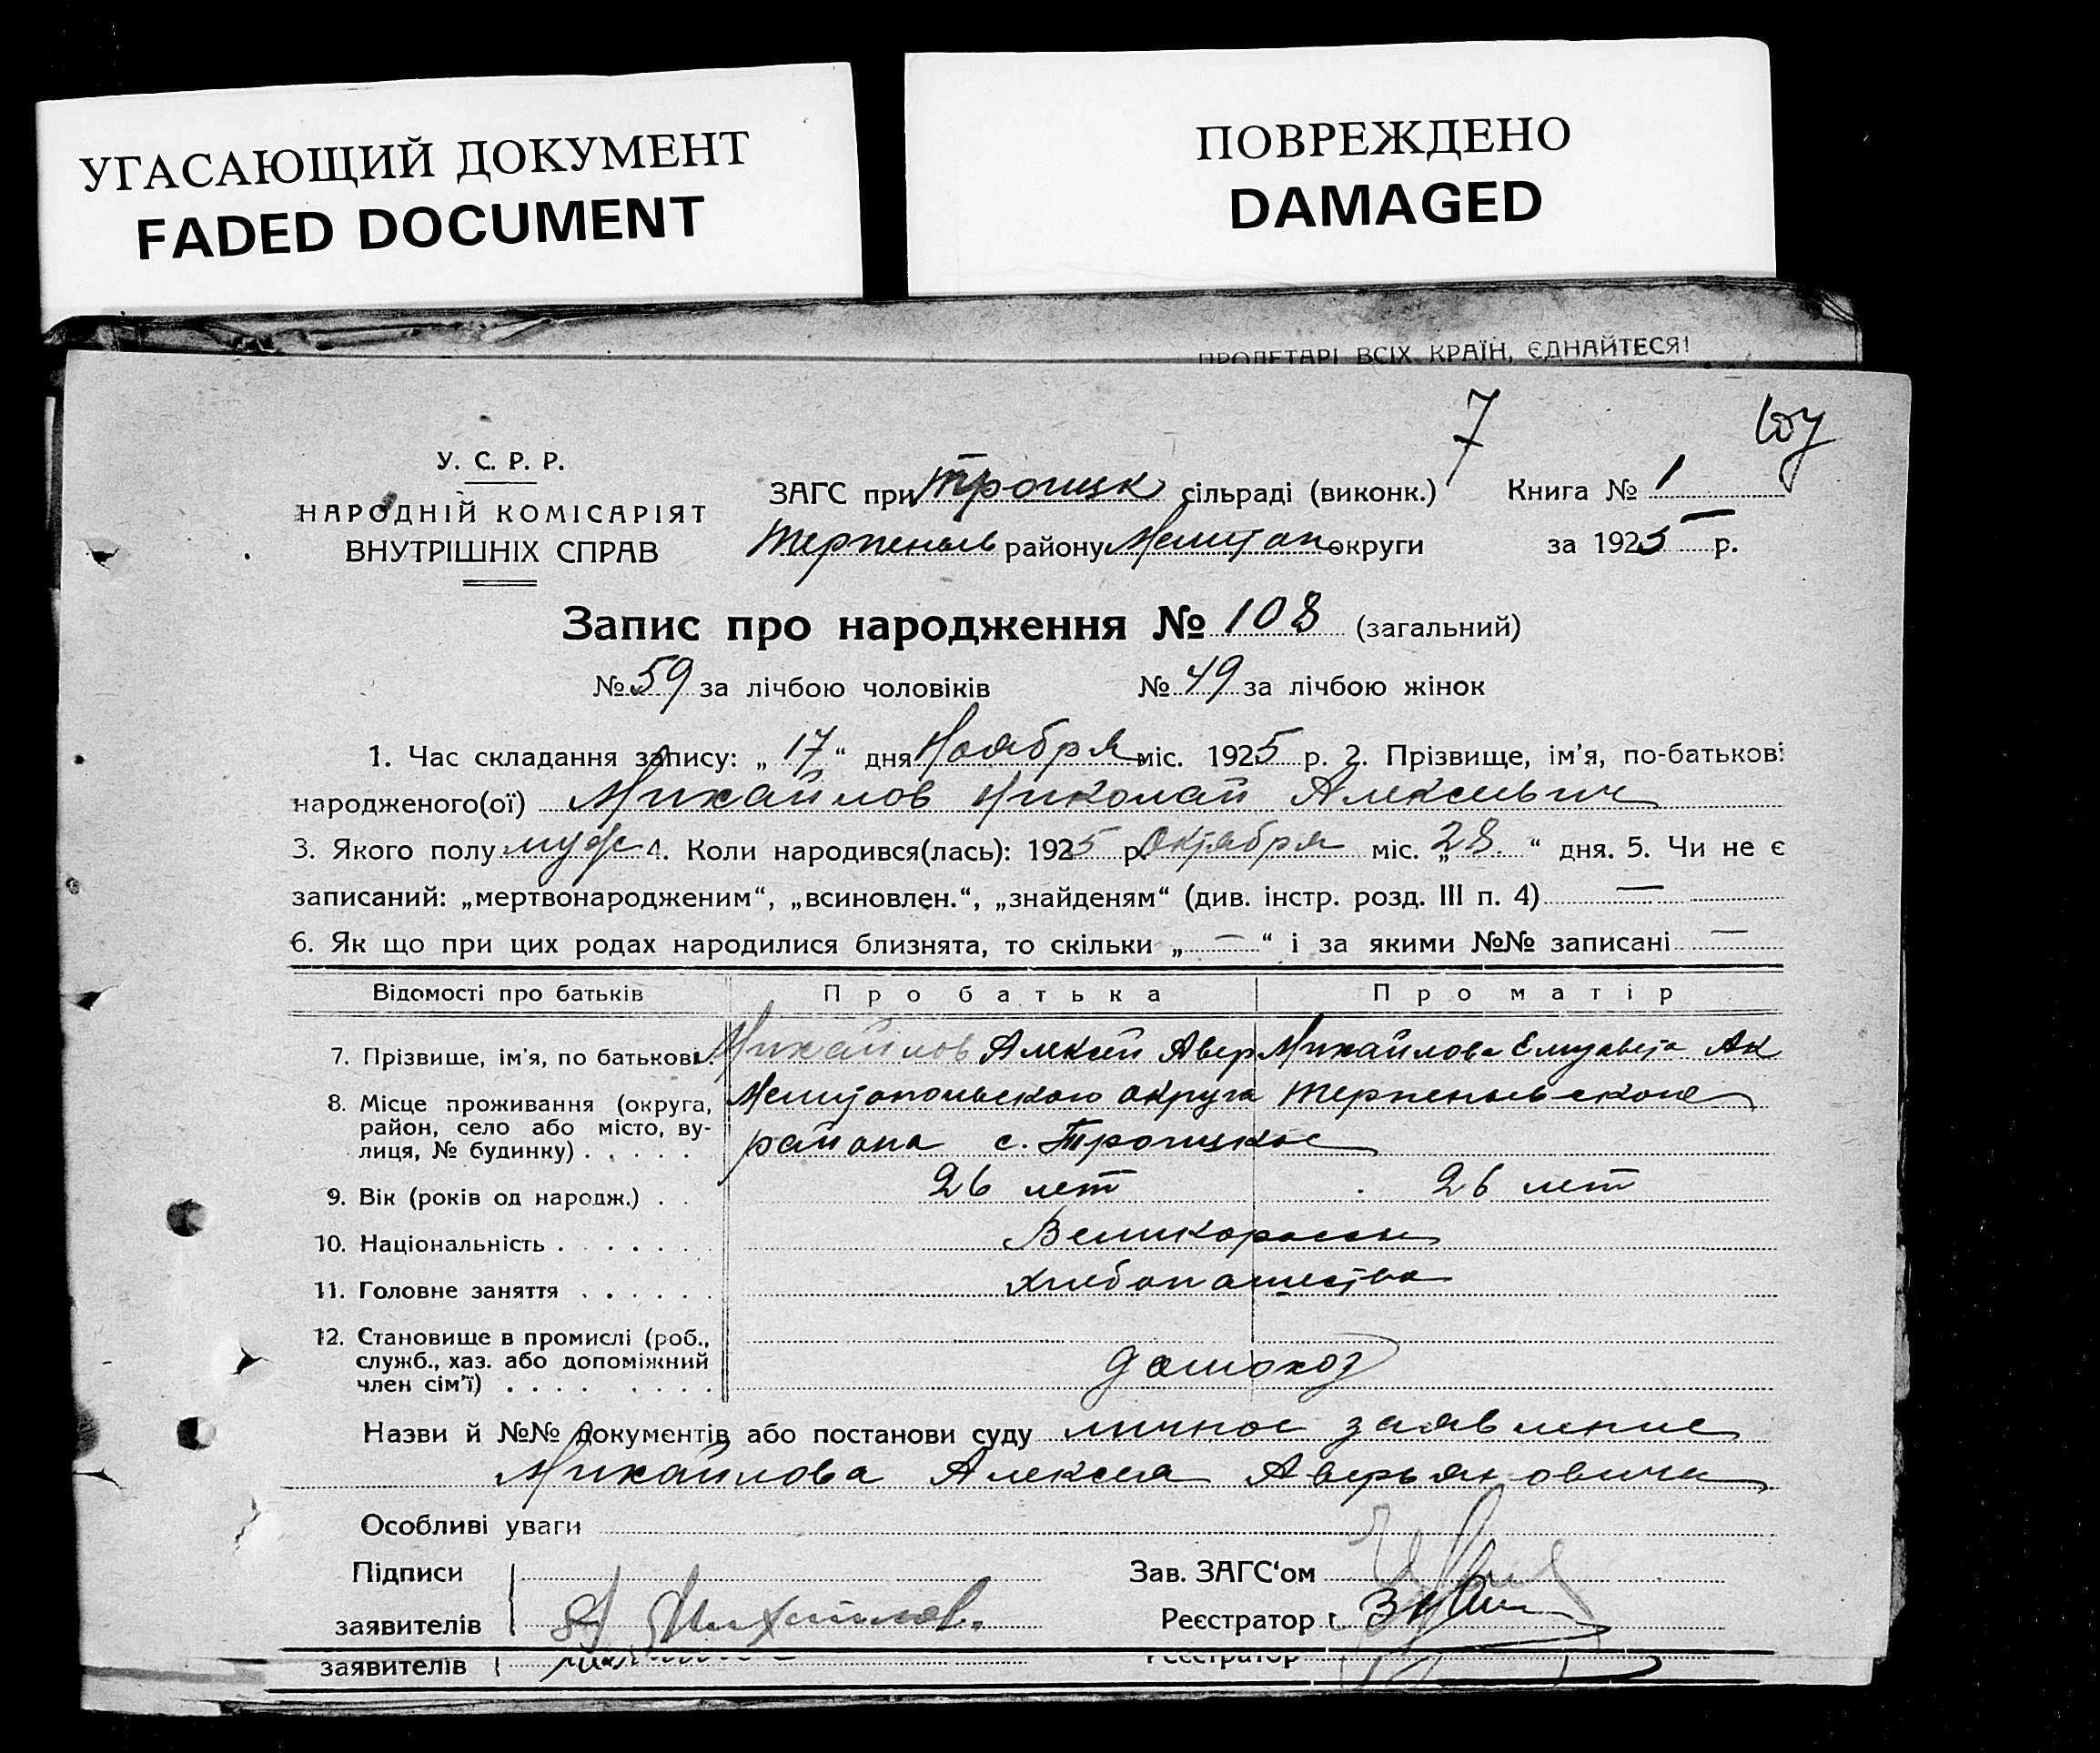 УГАСАЮЩИЙ ДОКУМЕНТ
FADED DOCUMENT
ПОВРЕЖДЕНО
DAMAGED
ПРОЛЕТАРІ ВСІХ КРАЇН, ЄДНАЙТЕСЯ!
7
У. С. Р. Р.
НАРОДНІЙ КОМІСАРІЯТ
ВНУТРІШНІХ СПРАВ
ЗАГС при Троицк сільраді (виконк.)
Терпеньев району Мелитоп округи
Книга № 1
за 1925 р.
Запис про народження № 108 (загальний)
№ 59 за лічбою чоловіків № 49 за лічбою жінок
1. Час складання запису: „ 17 “ дня Ноября міс. 1925 р. 2. Прізвище, ім'я, по-батькові
народженого(ої) Михайлов Николай Алексеевич
3. Якого полу муж 4. Коли народився(лась): 1925 р. Октября міс. „ 28. “ дня. 5. Чи не є
записаний: „мертвонародженим“, „всиновлен.“, „знайденям“ (див. інстр. розд. III п. 4) —
6. Як що при цих родах народилися близнята, то скільки „ — “ і за якими №№ записані —
Відомості про батьків Про батька Про матір
7. Прізвище, ім'я, по батькові. Михайлов Алексей Авер Михайлова Елизавета Ак
8. Місце проживання (округа, район, село або місто, вулиця, № будинку) . . . . . Мелитопольского округа Терпеньевского
района с. Троицкое
9. Вік (років од народж.) . . 26 лет 26 лет
10. Національність . . . . . . . Великороссы
11. Головне заняття . . . . . . Хлебопашество
12. Становище в промислі (роб., служб., хаз. або допоміжний член сім'ї) . . . . . . . . домохоз
Назви й №№ документів або постанови суду личное заявление
Михайлова Алексея Аверьяновича
Особливі уваги
Підписи
заявителів А Михайлов.
Зав. ЗАГС'ом
Реєстратор
заявителів
Реєстратор